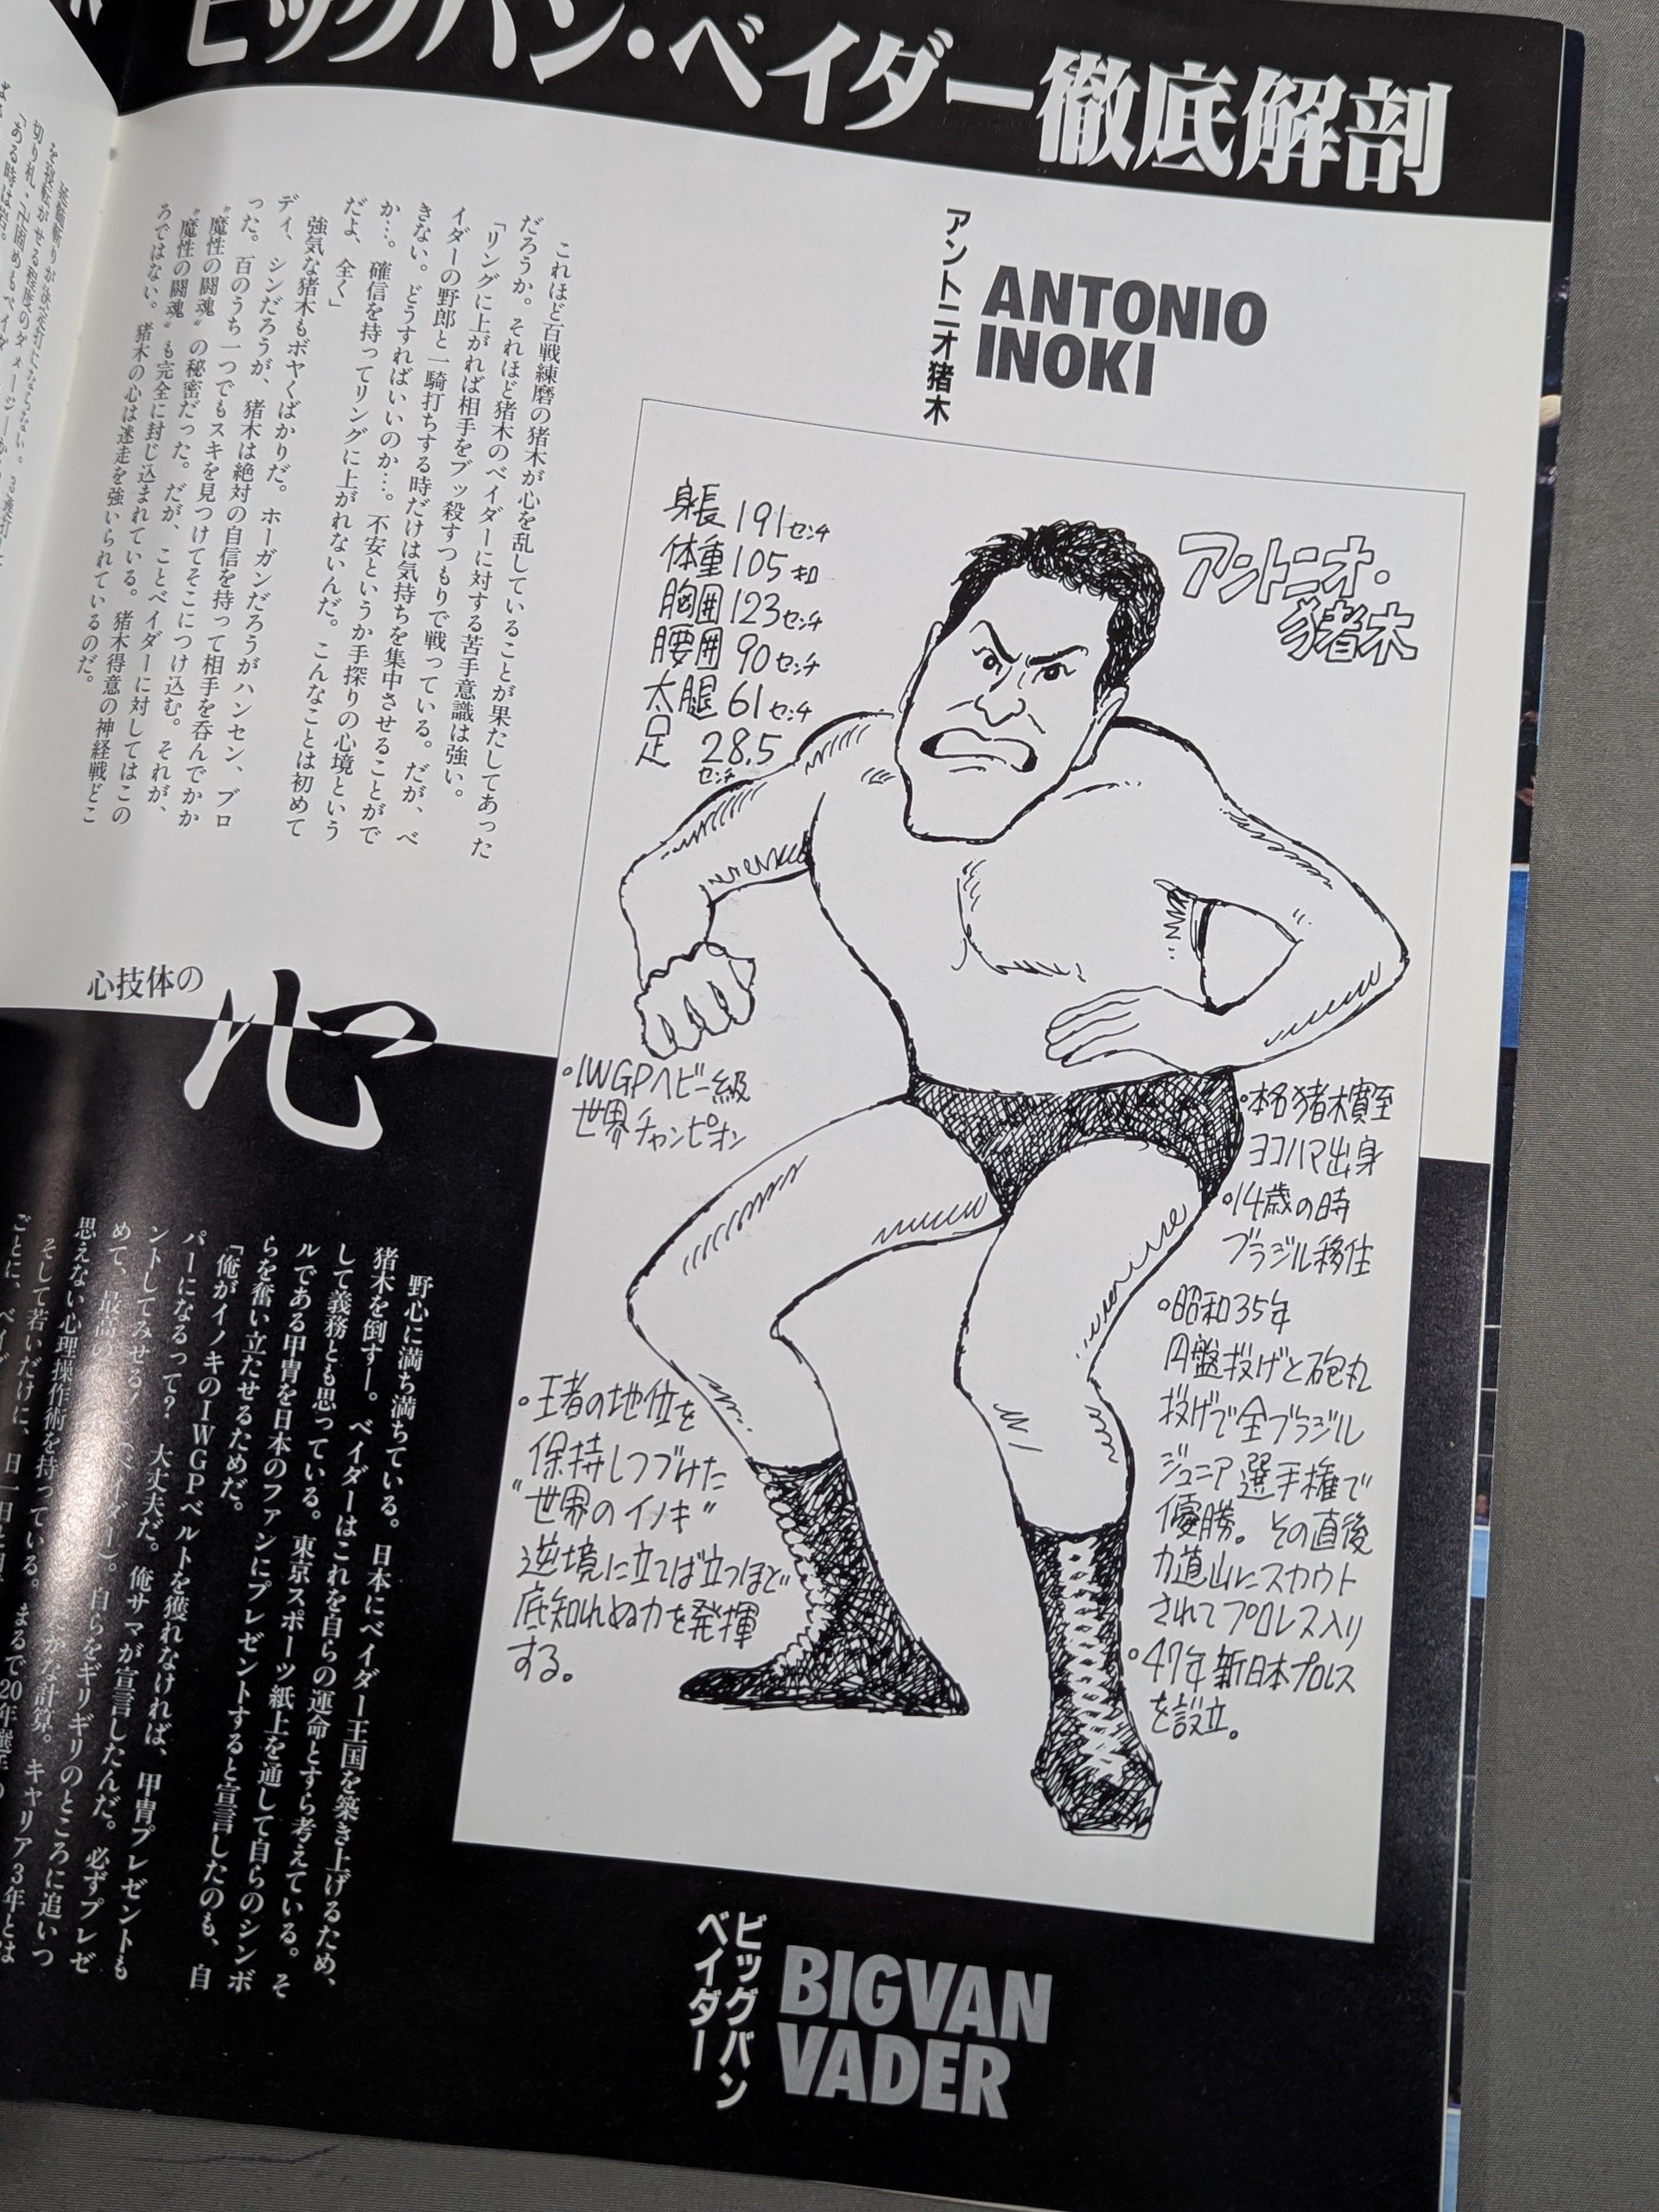 ビッグバン・ベイダー徹底解剖
アントニオ猪木
ANTONIO
INOKI
これほど百戦練磨の猪木が心を乱していることが果たしてあった
だろうか。それほど猪木のベイダーに対する苦手意識は強い。
「リングに上がれば相手をブッ殺すつもりで戦っている。だが、ベ
イダーの野郎と一騎打ちする時だけは気持ちを集中させることがで
きない。どうすればいいのか…。不安というか手探りの心境という
か…。確信を持ってリングに上がれないんだ。こんなことは初めて
だよ、全く」
強気な猪木もボヤくばかりだ。ホーガンだろうがハンセン、ブロ
ディ、シンだろうが、猪木は絶対の自信を持って相手を呑んでかか
った。百のうち一つでもスキを見つけてそこにつけ込む。それが、
〝魔性の闘魂〟の秘密だった。だが、ことベイダーに対してはこの
〝魔性の闘魂〟も完全に封じ込まれている。猪木得意の神経戦どこ
ろではない。猪木の心は迷走を強いられているのだ。
身長191センチ
体重105キロ
胸囲123センチ
腰囲90センチ
太腿61センチ
足 28.5
センチ
アントニオ・
猪木
・IWGPヘビー級
世界チャンピオン
・王者の地位を
保持しつづけた
"世界のイノキ"
逆境に立てば立つほど
底知れぬ力を発揮
する。
・本名猪木寛至
ヨコハマ出身
・14歳の時
ブラジル移住
・昭和35年
円盤投げと砲丸
投げで全ブラジル
ジュニア選手権で
優勝。その直後
力道山にスカウト
されてプロレス入り
・47年新日本プロレス
を設立。
心技体の
心
野心に満ち満ちている。日本にベイダー王国を築き上げるため、
猪木を倒すー。ベイダーはこれを自らの運命とすら考えている。そ
して義務とも思っている。東京スポーツ紙上を通して自らのシンボ
ルである甲冑を日本のファンにプレゼントすると宣言したのも、自
らを奮い立たせるためだ。
「俺がイノキのIWGPベルトを獲れなければ、甲冑プレゼントも
パーになるって？　大丈夫だ。俺サマが宣言したんだ。必ずプレゼ
ントしてみせる！」（ベイダー）。自らをギリギリのところに追いつ
めて、最高の
かな計算。キャリア3年とは
思えない心理操作術を持っている。まるで20年選手の
そして若いだけに、日一日と
ビッグバン
ベイダー
BIGVAN
VADER